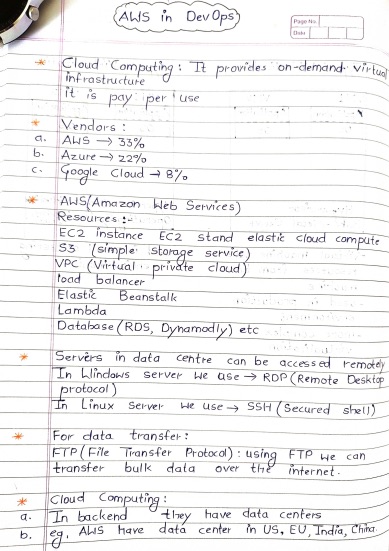 AWS in DevOps
Page No.
Date
* Cloud Computing: It provides on-demand virtual
infrastructure
it is pay per use
* Vendors :
a. AWS → 33%
b. Azure → 22%
c. Google Cloud → 8%
* AWS(Amazon Web Services)
Resources :-
EC2 instance EC2 stand elastic cloud compute
S3 (simple storage service)
VPC (Virtual private cloud)
load balancer
Elastic Beanstalk
Lambda
Database (RDS, Dynamodly) etc
* Servers in data centre can be accessed remotely
In Windows server we use → RDP (Remote Desktop
protocol)
In Linux Server we use → SSH (Secured shell)
* For data transfer :
FTP (File Transfer Protocol) : using FTP we can
transfer bulk data over the internet.
* Cloud Computing :
a. In backend they have data centers
b. eg, AWS have data center in US, EU, India, China.